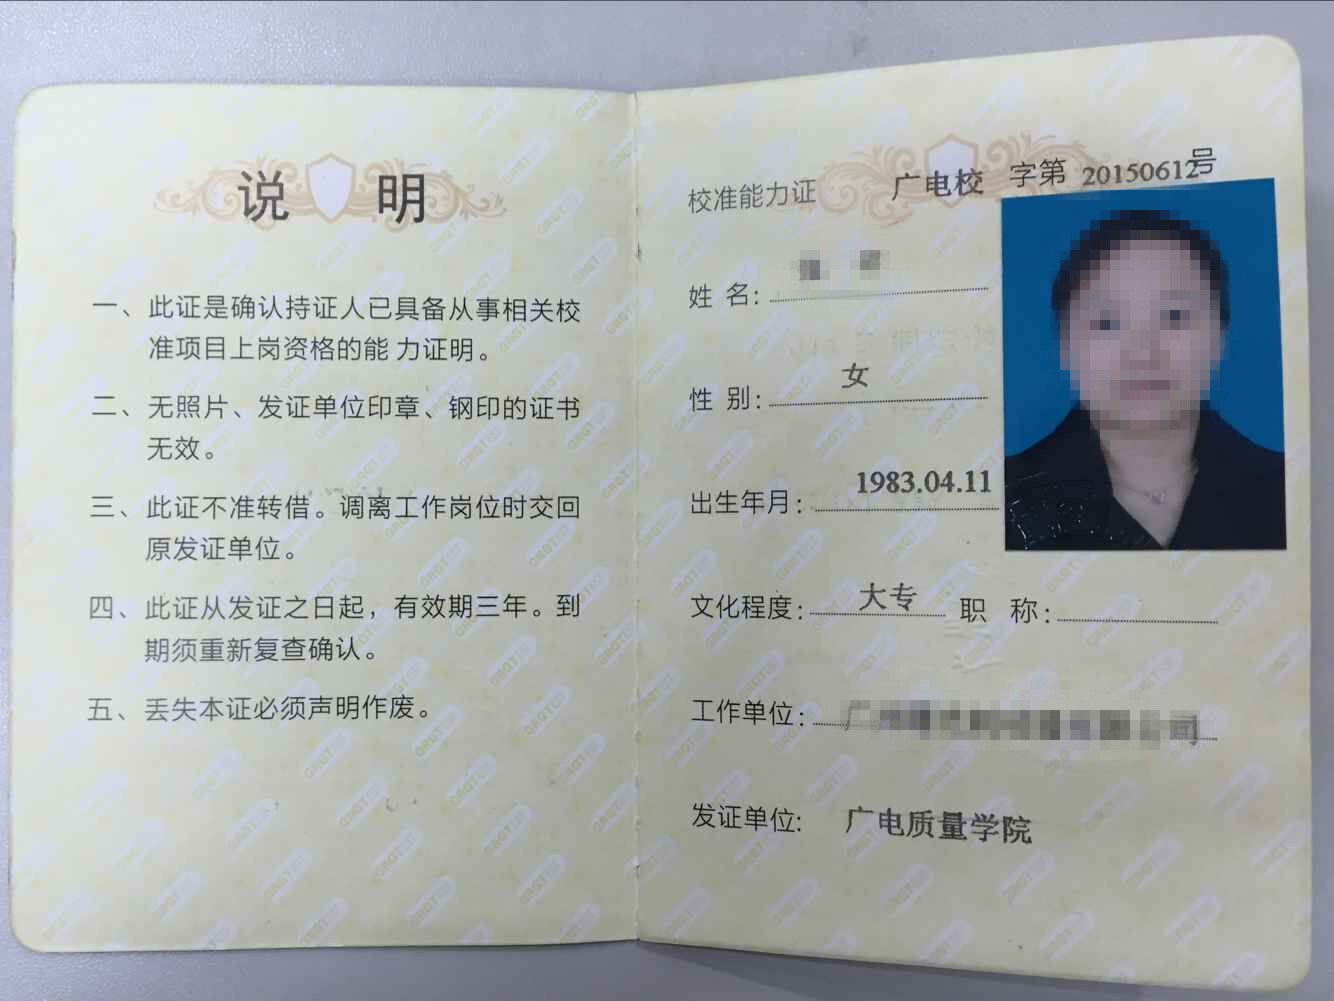 说 明
一、此证是确认持证人已具备从事相关校
准项目上岗资格的能 力证明。
二、无照片、发证单位印章、钢印的证书
无效。
三、此证不准转借。调离工作岗位时交回
原发证单位。
四、此证从发证之日起，有效期三年。到
期须重新复查确认。
五、丢失本证必须声明作废。
校准能力证 广电校 字第 20150612号
姓 名:
性 别: 女
出生年月: 1983.04.11
文化程度: 大专 职 称:
工作单位:
发证单位: 广电质量学院